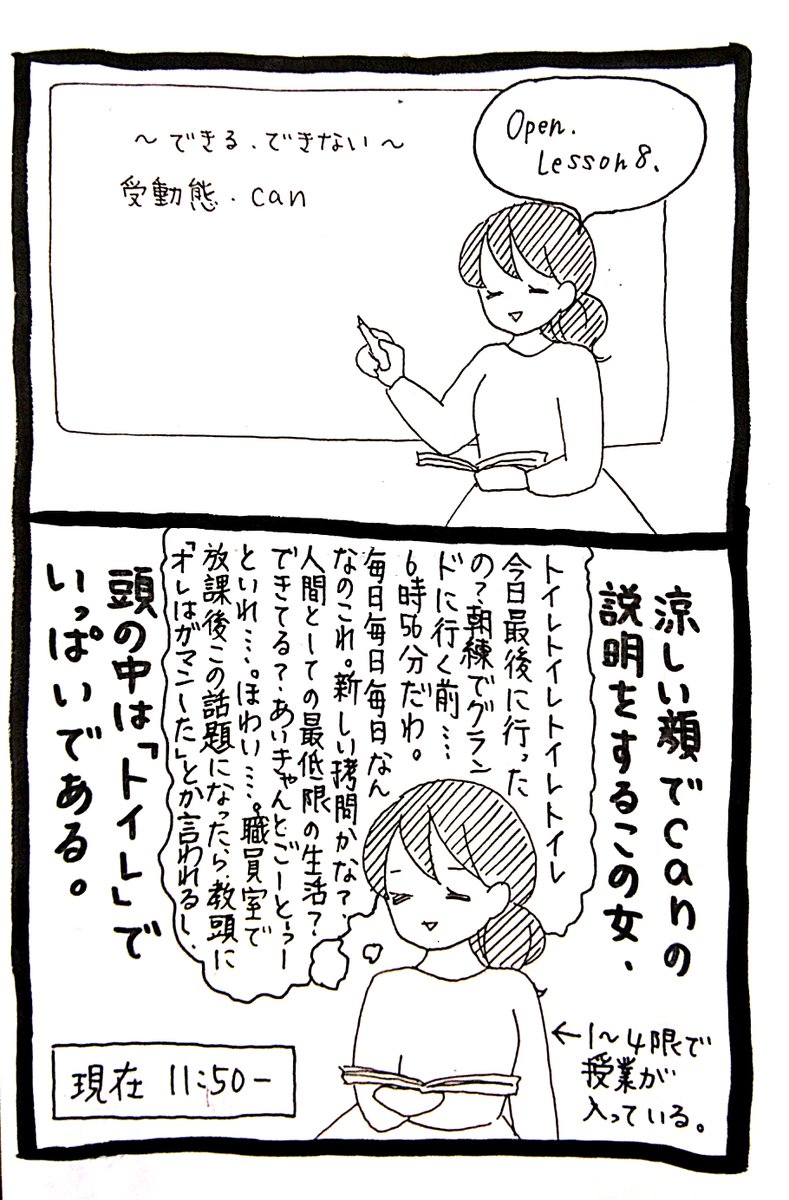 Open.
Lesson 8.
～できる、できない～
受動態・can
涼しい顔でcanの
説明をするこの女、
トイレトイレトイレトイレトイレ
今日最後に行った
の？朝練でグラン
ドに行く前……
6時56分だわ。
毎日毎日毎日なん
なのこれ。新しい拷問かな？
人間としての最低限の生活？
できてる？あいきゃんとごーとぅー
といれ…。ほわい…。職員室で
放課後この話題になったら、教頭に
「オレはガマンした」とか言われるし、
頭の中は「トイレ」で
いっぱいである。
←1～4限で
授業が
入っている。
現在 11:50－